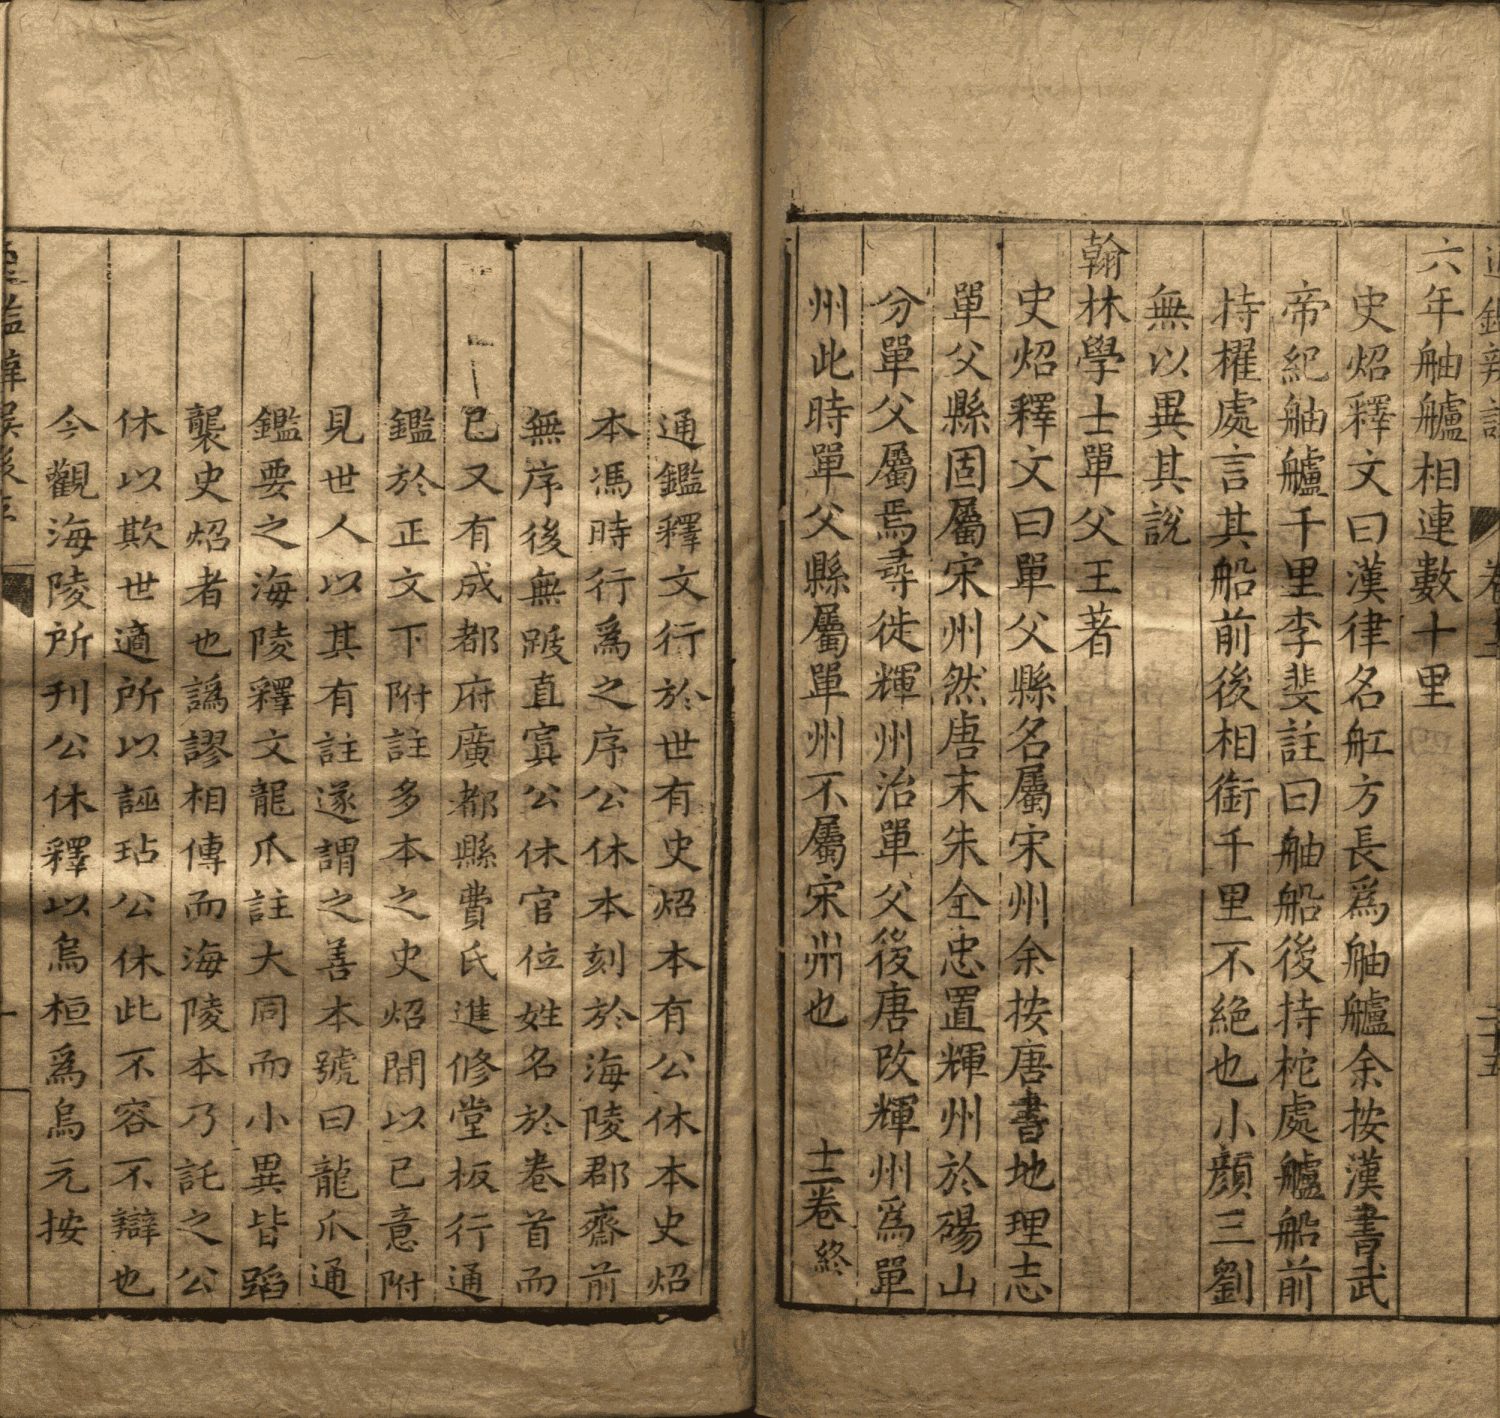 六年舳艫相連數十里
史炤釋文曰漢律名舡方長爲舳艫余按漢書武
帝紀舳艫千里李斐註曰舳船後持柁處艫船前
持櫂處言其船前後相銜千里不絶也小顔三劉
無以異其説
翰林學士單父王著
史炤釋文曰單父縣名屬宋州余按唐書地理志
單父縣固屬宋州然唐末朱全忠置輝州於碭山
分單父屬焉尋徙輝州治單父後唐改輝州爲單
州此時單父縣屬單州不屬宋州也 十二卷終
通鑑釋文行於世有史炤本有公休本史炤
本馮時行爲之序公休本刻於海陵郡齋前
無序後無跋直寘公休官位姓名於卷首而
已又有成都府廣都縣費氏進修堂板行通
鑑於正文下附註多本之史炤間以己意附
見世人以其有註遂謂之善本號曰龍爪通
鑑要之海陵釋文龍爪註大同而小異皆蹈
襲史炤者也譌謬相傳而海陵本乃託之公
休以欺世適所以誣玷公休此不容不辯也
今觀海陵所刊公休釋以烏桓爲烏元按